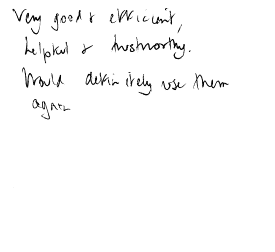 Very good & efficient,
helpful & trustworthy.
Would definitely use them
again